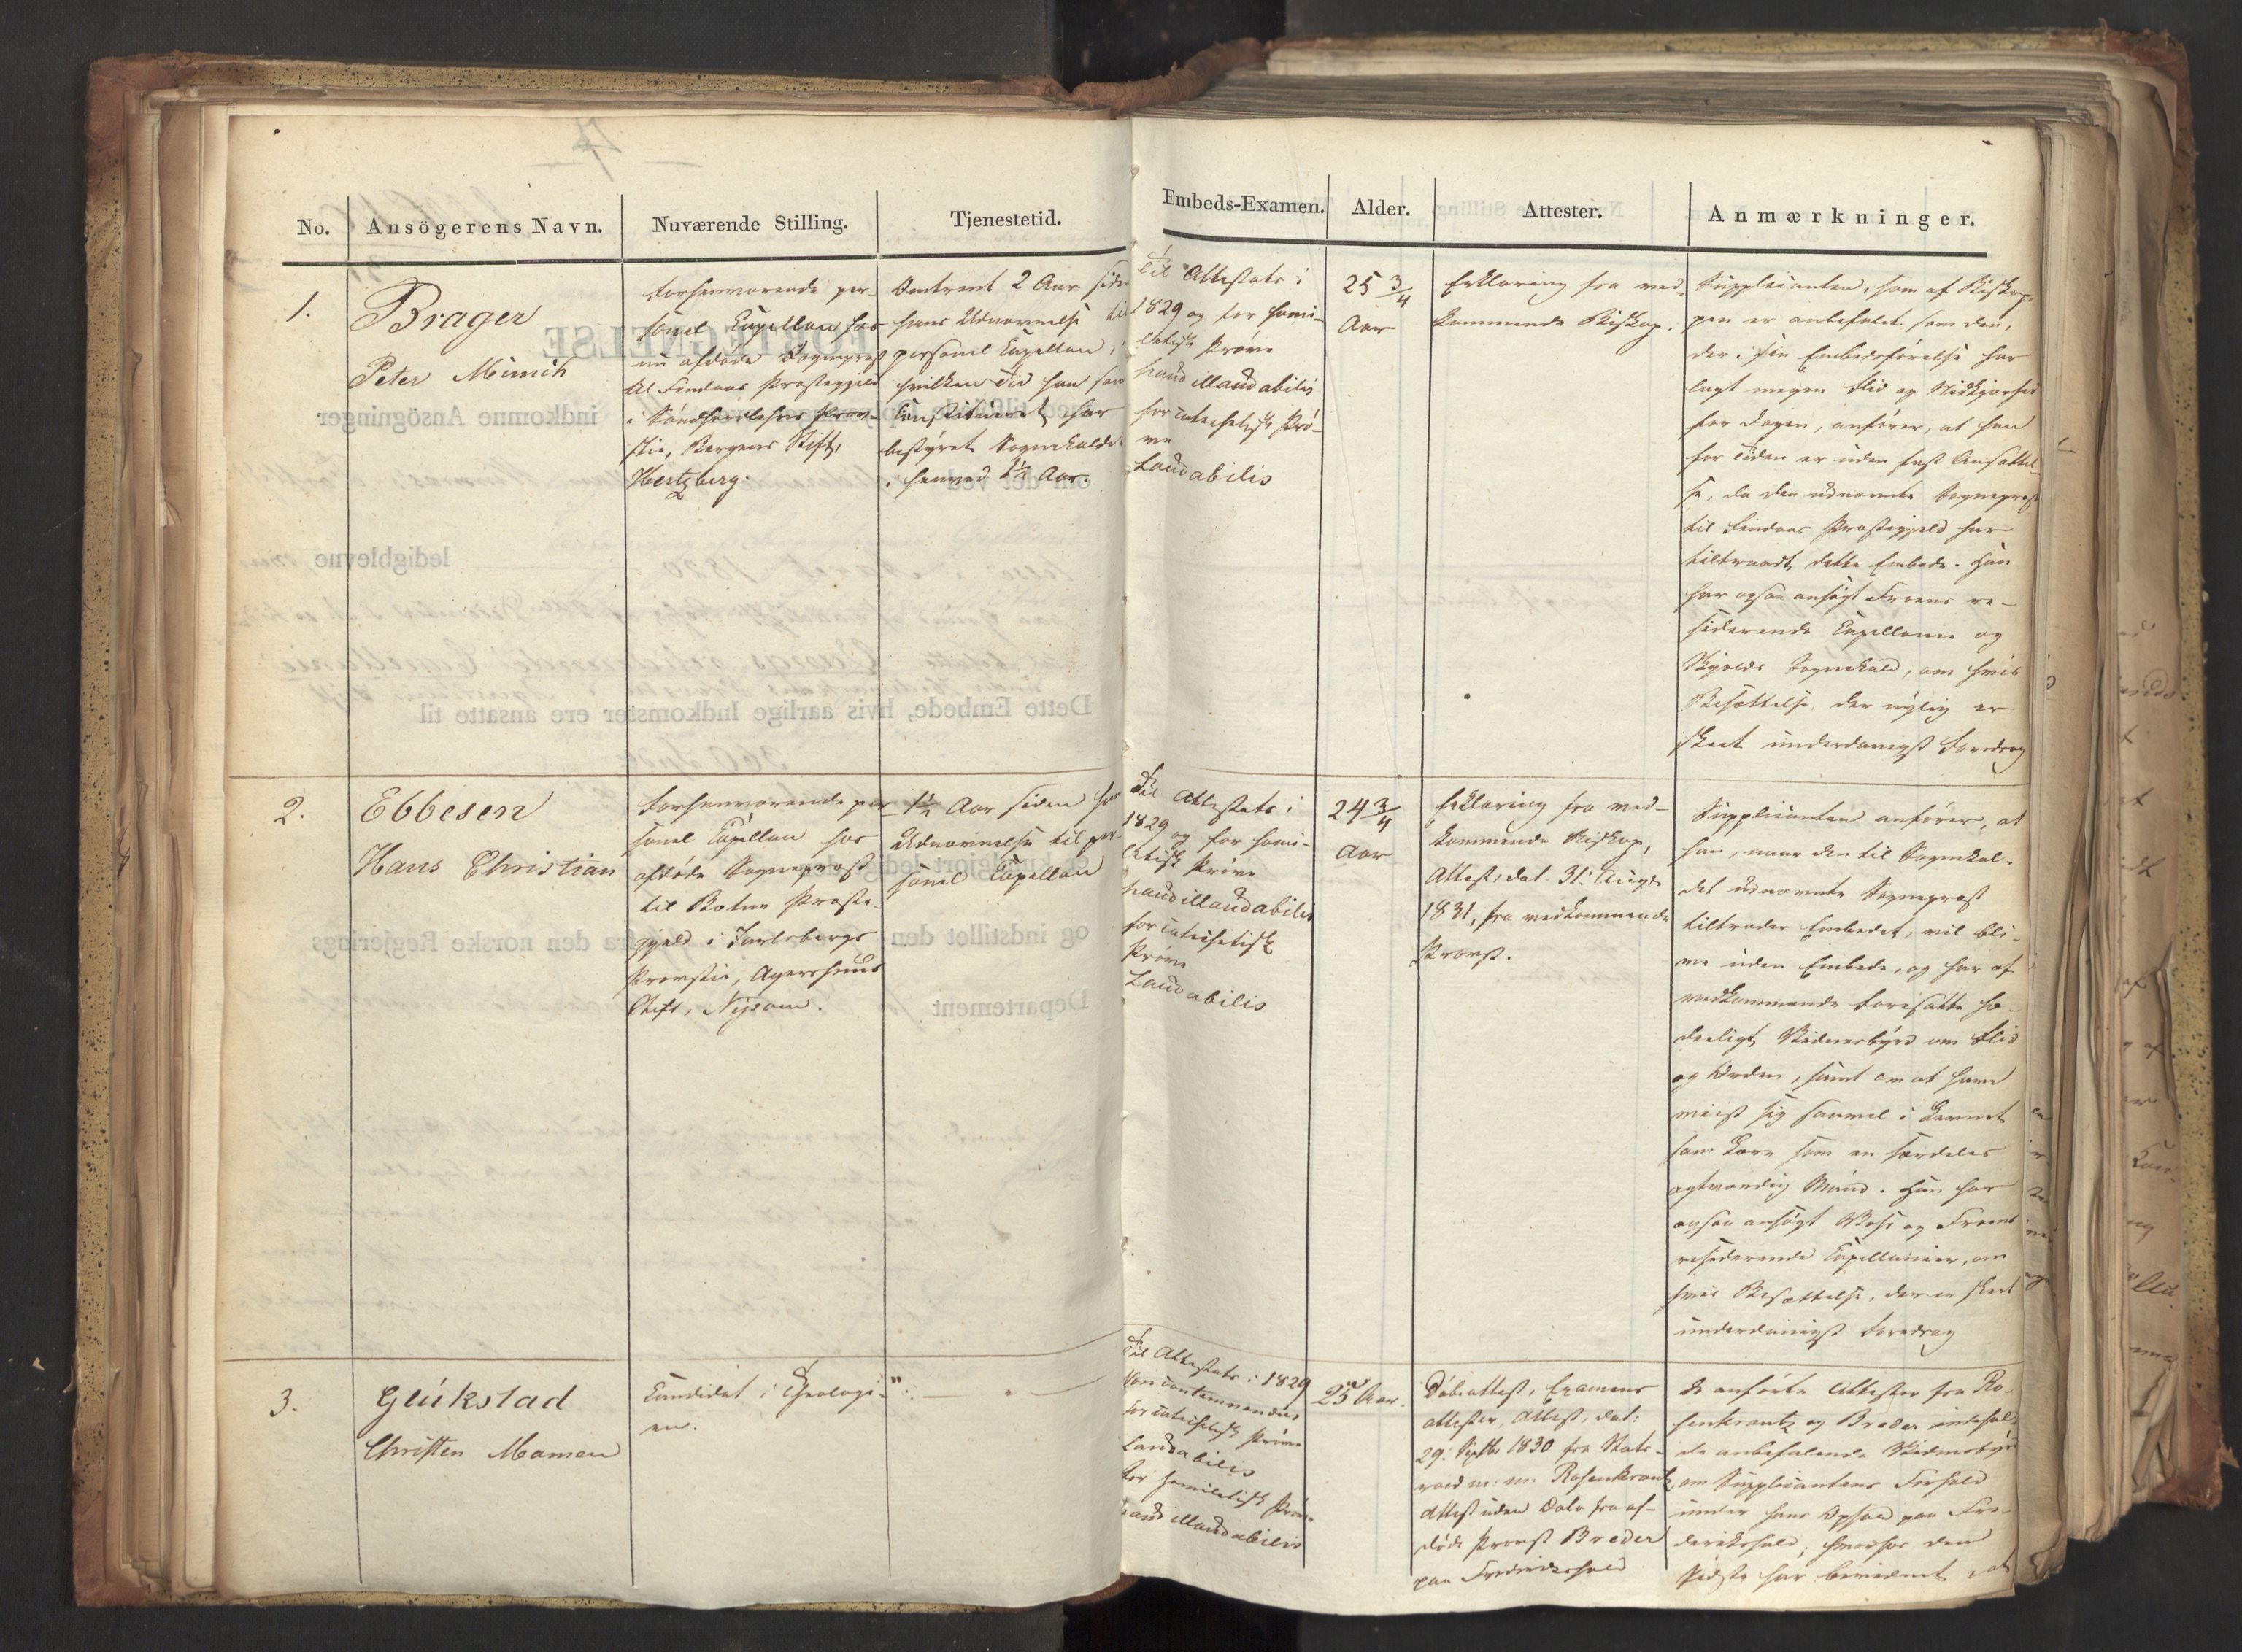 No.
Ansögerens Navn.
Nuværende Stilling.
Tjenestetid.
Embeds-Examen.
Alder.
Attester.
Anmærkninger.
1.
Brager
Peter Munch
forhenværende per-
sonel Capellan hos
nu afdøde Sognepræst
til Findaas Præstegjeld
i Søndhordlehns Prov-
stie, Bergens Stift,
Hertzberg.
Omtrent 2 Aar siden
hans Udnævnelse til
personel Capellan,
hvilken Tid han som
Constitueret har
bestyret Sognekaldet
i henved 1½ Aar.
Til Attestats i
1829 og for homi-
letisk Prøve
haud illaudabilis
for catechetisk Prø-
ve
Laudabilis
25 3/4
Aar
Erklæring fra ved-
kommende Biskop.
Supplicanten, som af Biskop-
pen er anbefalet som den,
der i sin Embedsførelse har
lagt megen Flid og Nidkjærhed
for Dagen, anfører, at han
for Tiden er uden fast Ansættel-
se, da den udnævnte Sognepræst
til Findaas Præstegjeld har
tiltraadt dette Embede. Han
har ogsaa ansøgt Froens re-
siderende Capellanie og
Skjolds Sognekald, om hvis
Besættelse der nylig er
skeet underdanigst Foredrag
2.
Ebbesen
Hans Christian
forhenværende per-
sonel Capellan hos
afdøde Sognepræst
til Botne Præste-
gjeld i Jarlsbergs
Provstie, Agershuus
Stift, Nysom.
1½ Aar siden hans
Udnævnelse til per-
sonel Capellan
Til Attestats i
1829 og for homi-
letisk Prøve
haud illaudabilis
for catechetisk
Prøve
Laudabilis
24 3/4
Aar
Erklæring fra ved-
kommende Biskop,
Attest, dat. 31. Augt.
1831, fra vedkommende
Provst.
Supplicanten anfører, at
han, naar den til Sognekal-
det udnævnte Sognepræst
tiltræder Embedet, vil bli-
ve uden Embede, og har af
vedkommende Foresatte hæ-
derligt Vidnesbyrd om Flid
og Orden, samt om at have
viist sig saavel i Levnet
som Lære som en særdeles
agtværdig Mand. Han har
ogsaa ansøgt Voss og Froens
residerende Capellanier, om
hvis Besættelse, der er skeet
underdanigst Foredrag
3.
Glükstad
Christen Mamen
Candidat i Theologi-
en.
"
Til Attestats i 1829
Non contemnendus
for catechetisk Prøve
Laudabilis
for homiletisk Prøve
haud illaudabilis
25 Aar.
Døbeattest, Examens
attester, Attest, dat:
29. Septbr 1830 fra Stats-
raad m. m. Rosenkrantz
Attest uden Dato fra af-
døde Provst Breder
paa Frederikshald
De anførte Attester fra Ro-
senkrantz og Breder indehol-
de anbefalende Vidnesbyrd
om Supplicantens Forhold
under hans Ophold paa Fre-
derikshald; hvorhos den
Sidste har bevidnet, at